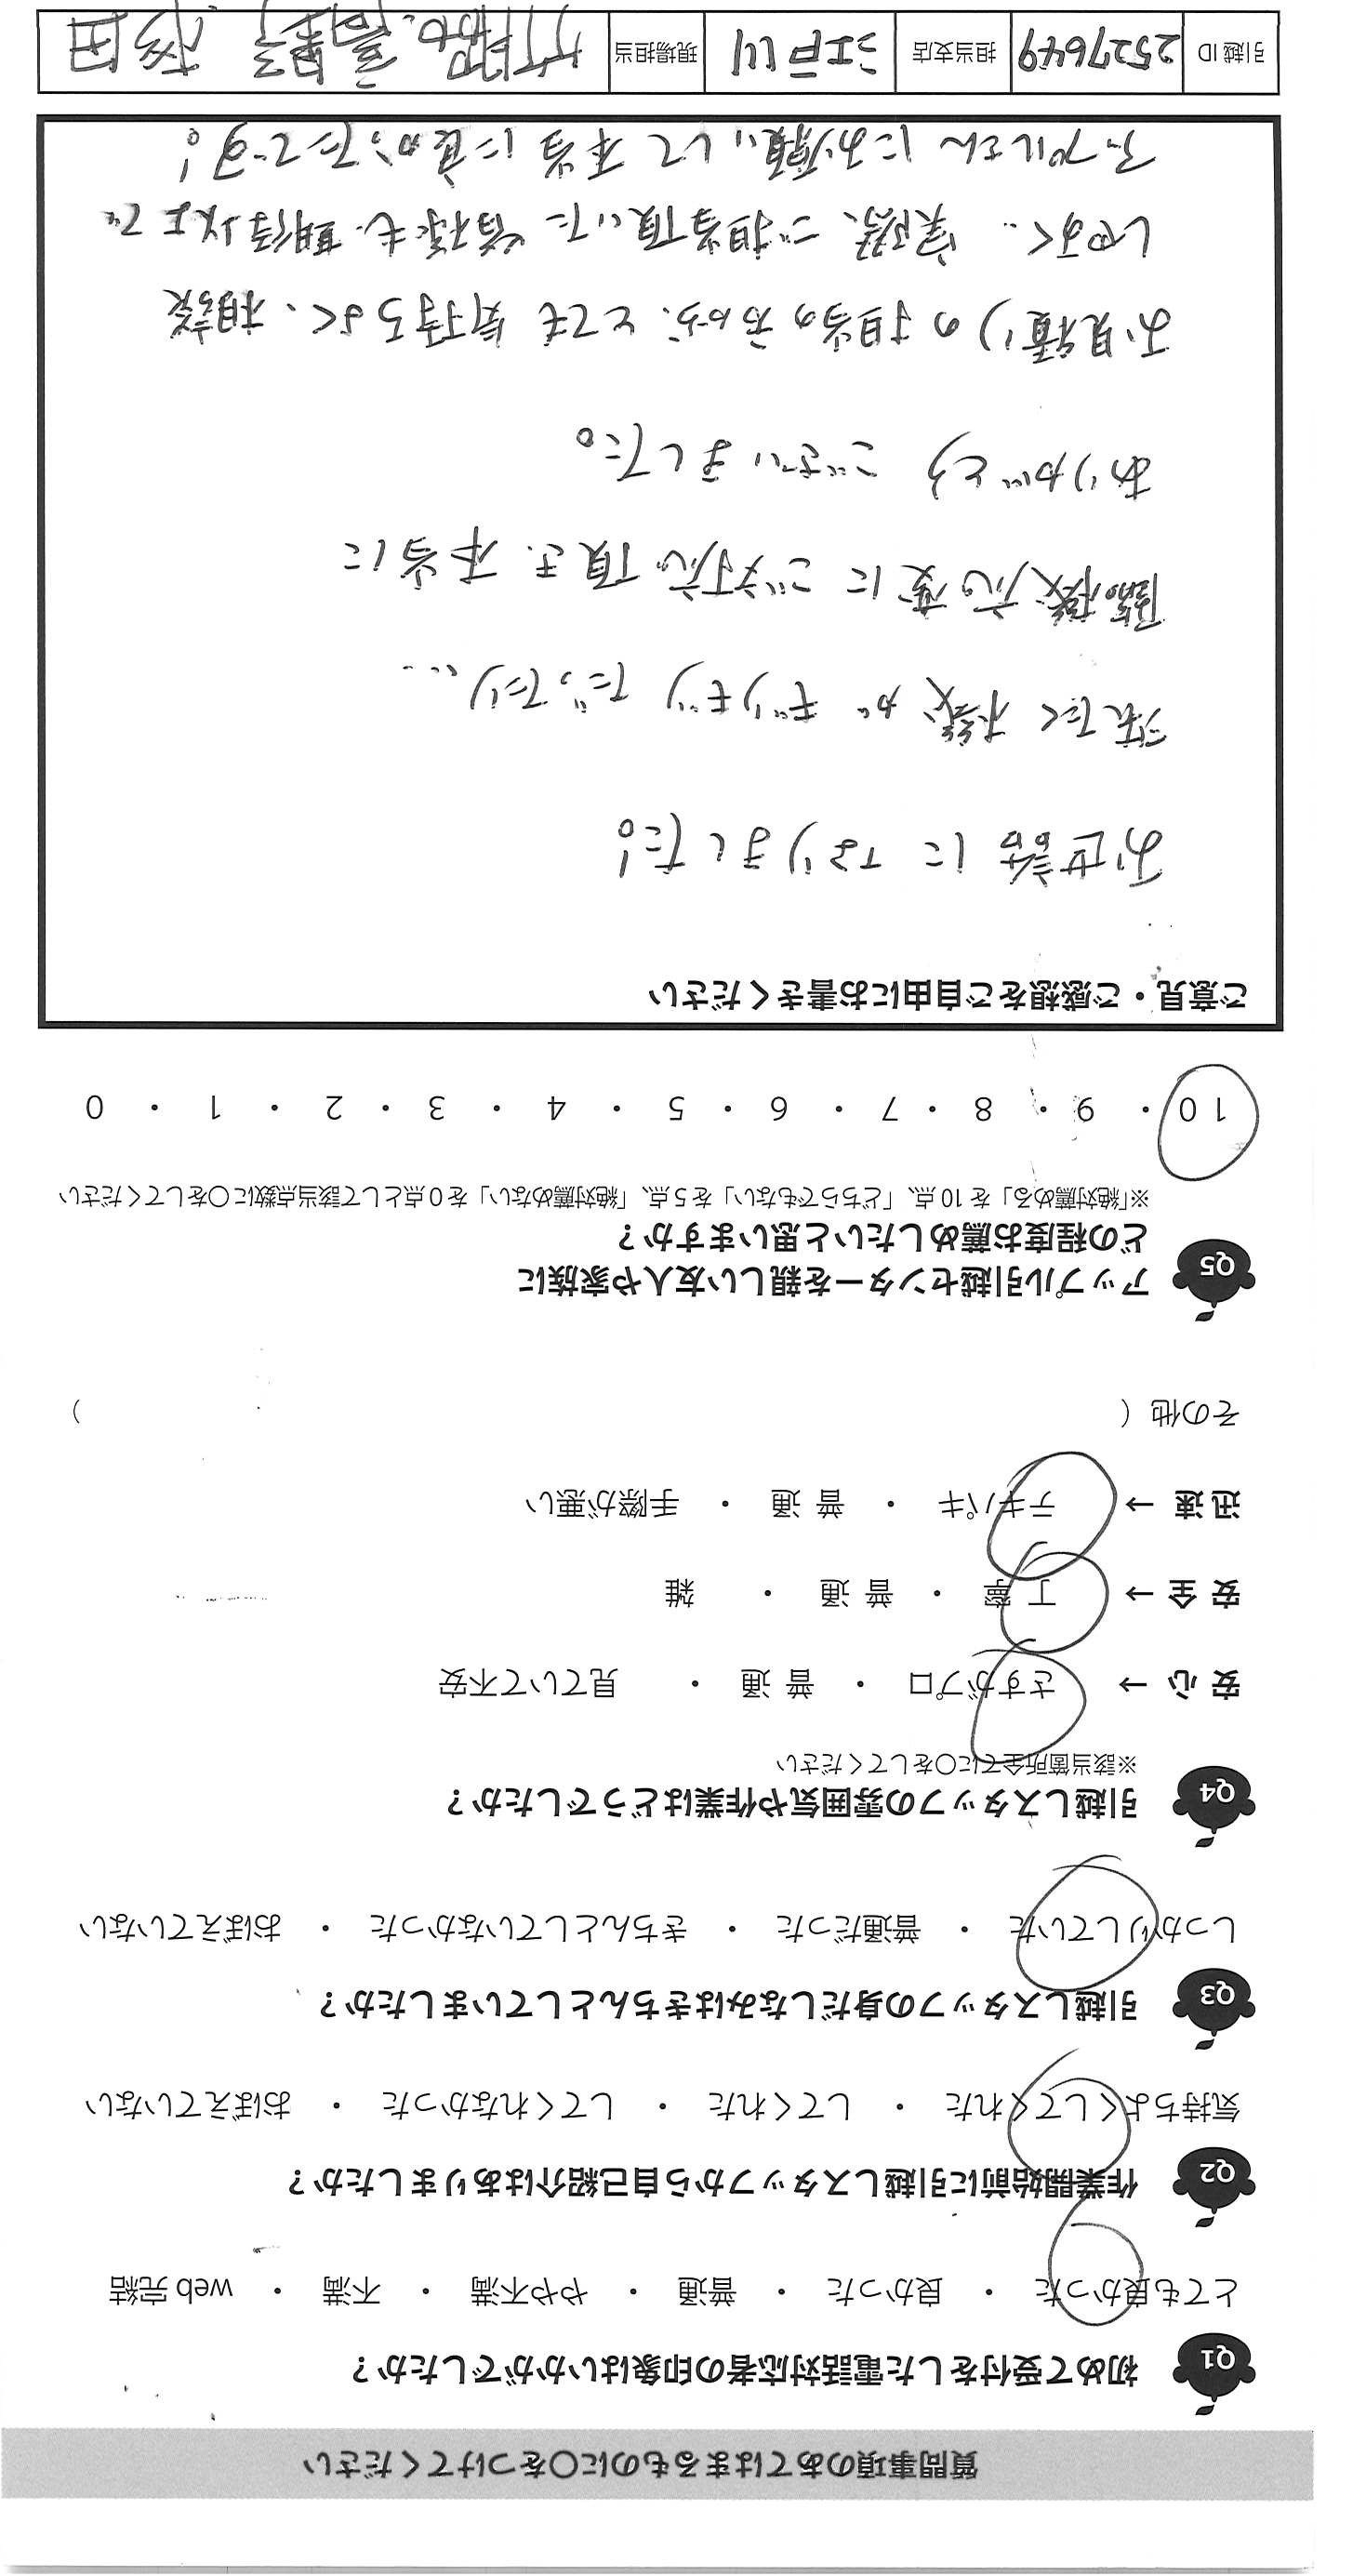 質問事項のあてはまるものに〇をつけてください
Q1 初めて受付をした電話対応者の印象はいかがでしたか？
とても良かった ・ 良かった ・ 普通 ・ やや不満 ・ 不満 ・ web 完結
Q2 作業開始前に引越しスタッフから自己紹介はありましたか？
気持ちよくしてくれた ・ してくれた ・ してくれなかった ・ おぼえていない
Q3 引越しスタッフの身だしなみはきちんとしていましたか？
しっかりしていた ・ 普通だった ・ きちんとしていなかった ・ おぼえていない
Q4 引越しスタッフの雰囲気や作業はどうでしたか？
※該当箇所全てに〇をしてください
安 心 → さすがプロ ・ 普 通 ・ 見ていて不安
安 全 → 丁 寧 ・ 普 通 ・ 雑
迅 速 → テキパキ ・ 普 通 ・ 手際が悪い
その他（ ）
Q5 アップル引越センターを親しい友人や家族に
どの程度お薦めしたいと思いますか？
※「絶対薦める」を 10 点、「どちらでもない」を 5 点、「絶対薦めない」を 0 点として該当点数に〇をしてください
10 ・ 9 ・ 8 ・ 7 ・ 6 ・ 5 ・ 4 ・ 3 ・ 2 ・ 1 ・ 0
ご意見・ご感想をご自由にお書きください
お世話になりました！
洗たく機がギリギリだったり、、、
臨機応変にご対応頂き、本当に
ありがとうございました。
お見積りの担当の方が、とても気持ちよく、相談
しやすく、実際、ご担当頂いた皆様も、期待以上で
アップルさんにお願いして本当に良かったです！
引越 ID 2527649 担当支店 江戸川 現場担当 竹脇、高野、杉田